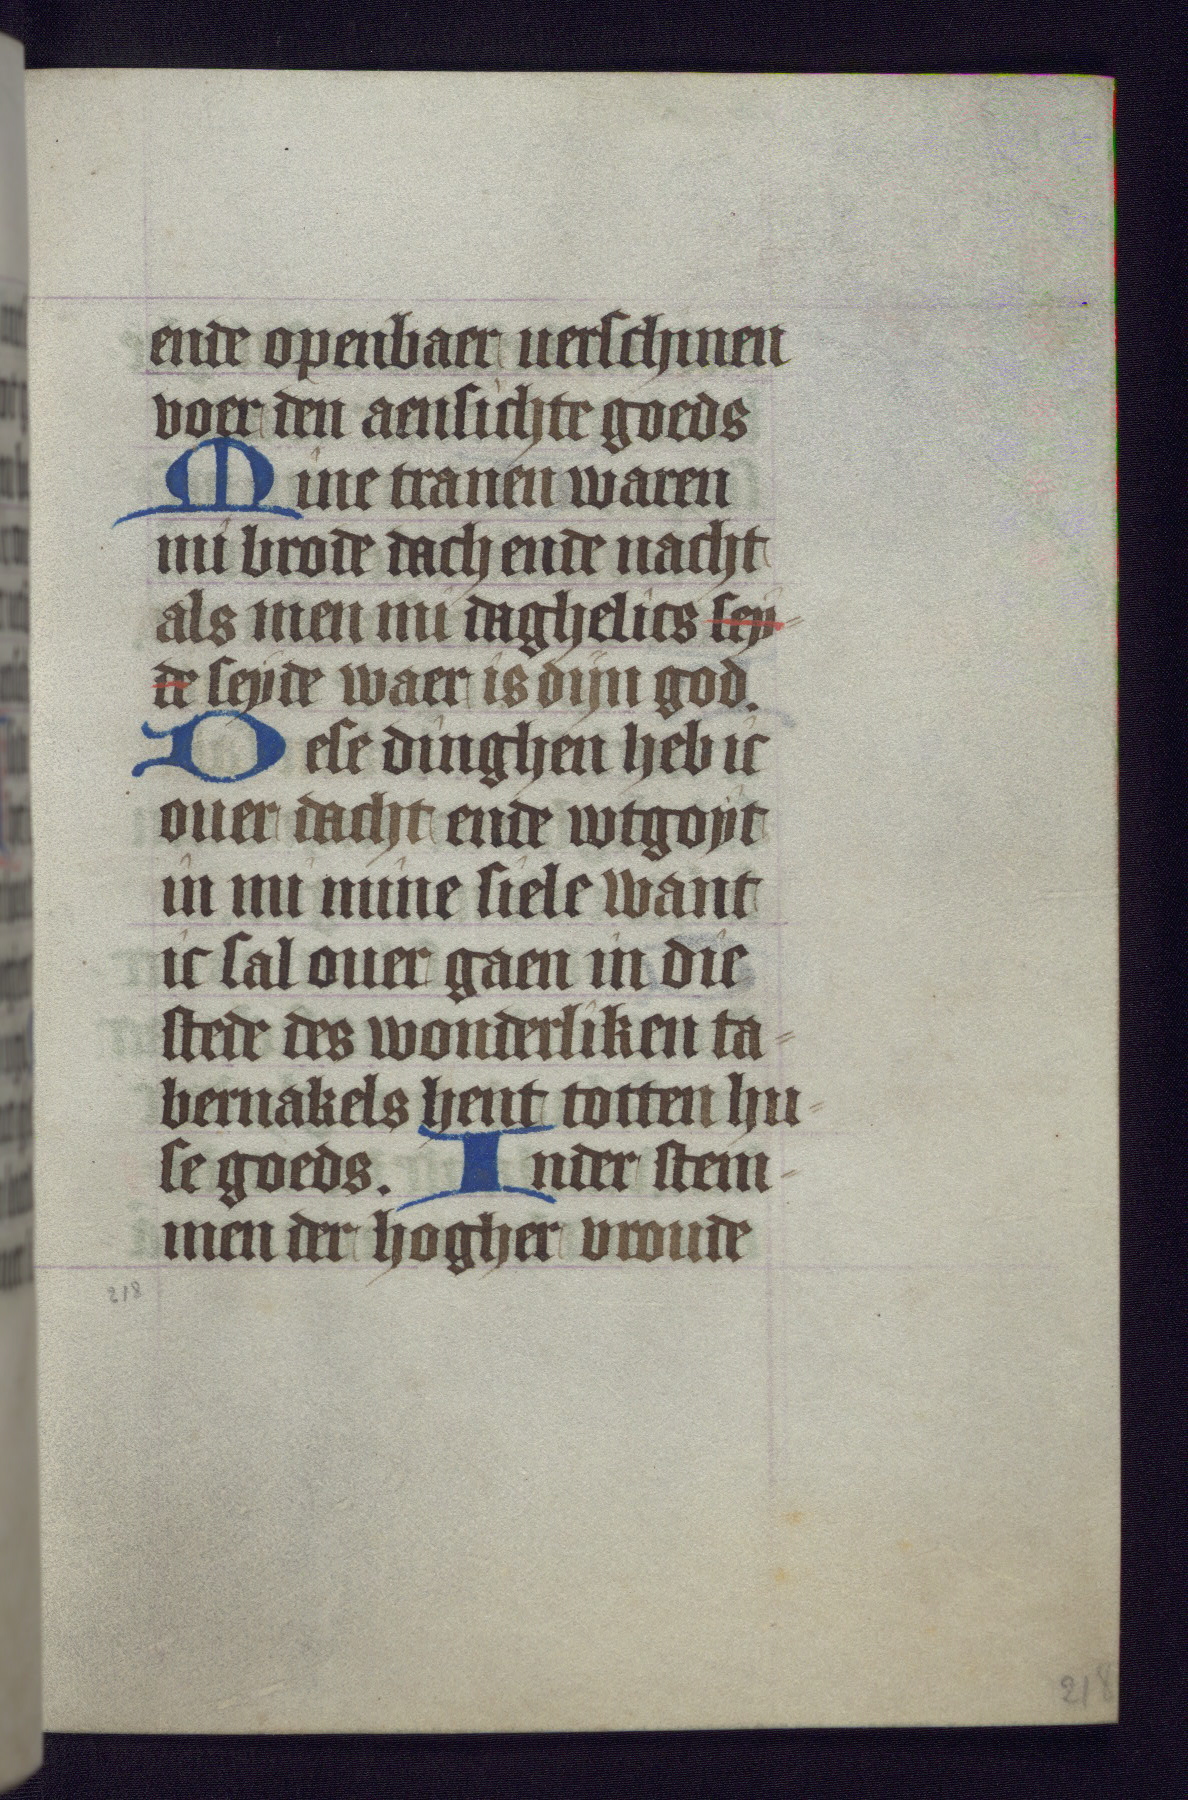 ende openbaer uerschinen
voer den aensichte goeds
Mine tranen waren
mi brode dach ende nacht
als men mi daghelics sey-
de seyde waer is dijn god.
Dese dinghen heb ic
ouer dacht ende wtgoyt
in mi mine siele want
ic sal ouer gaen in die
stede des wonderliken ta-
bernakels hent totten hu-
se goeds. Inder stem-
men der hogher vroude
218
218